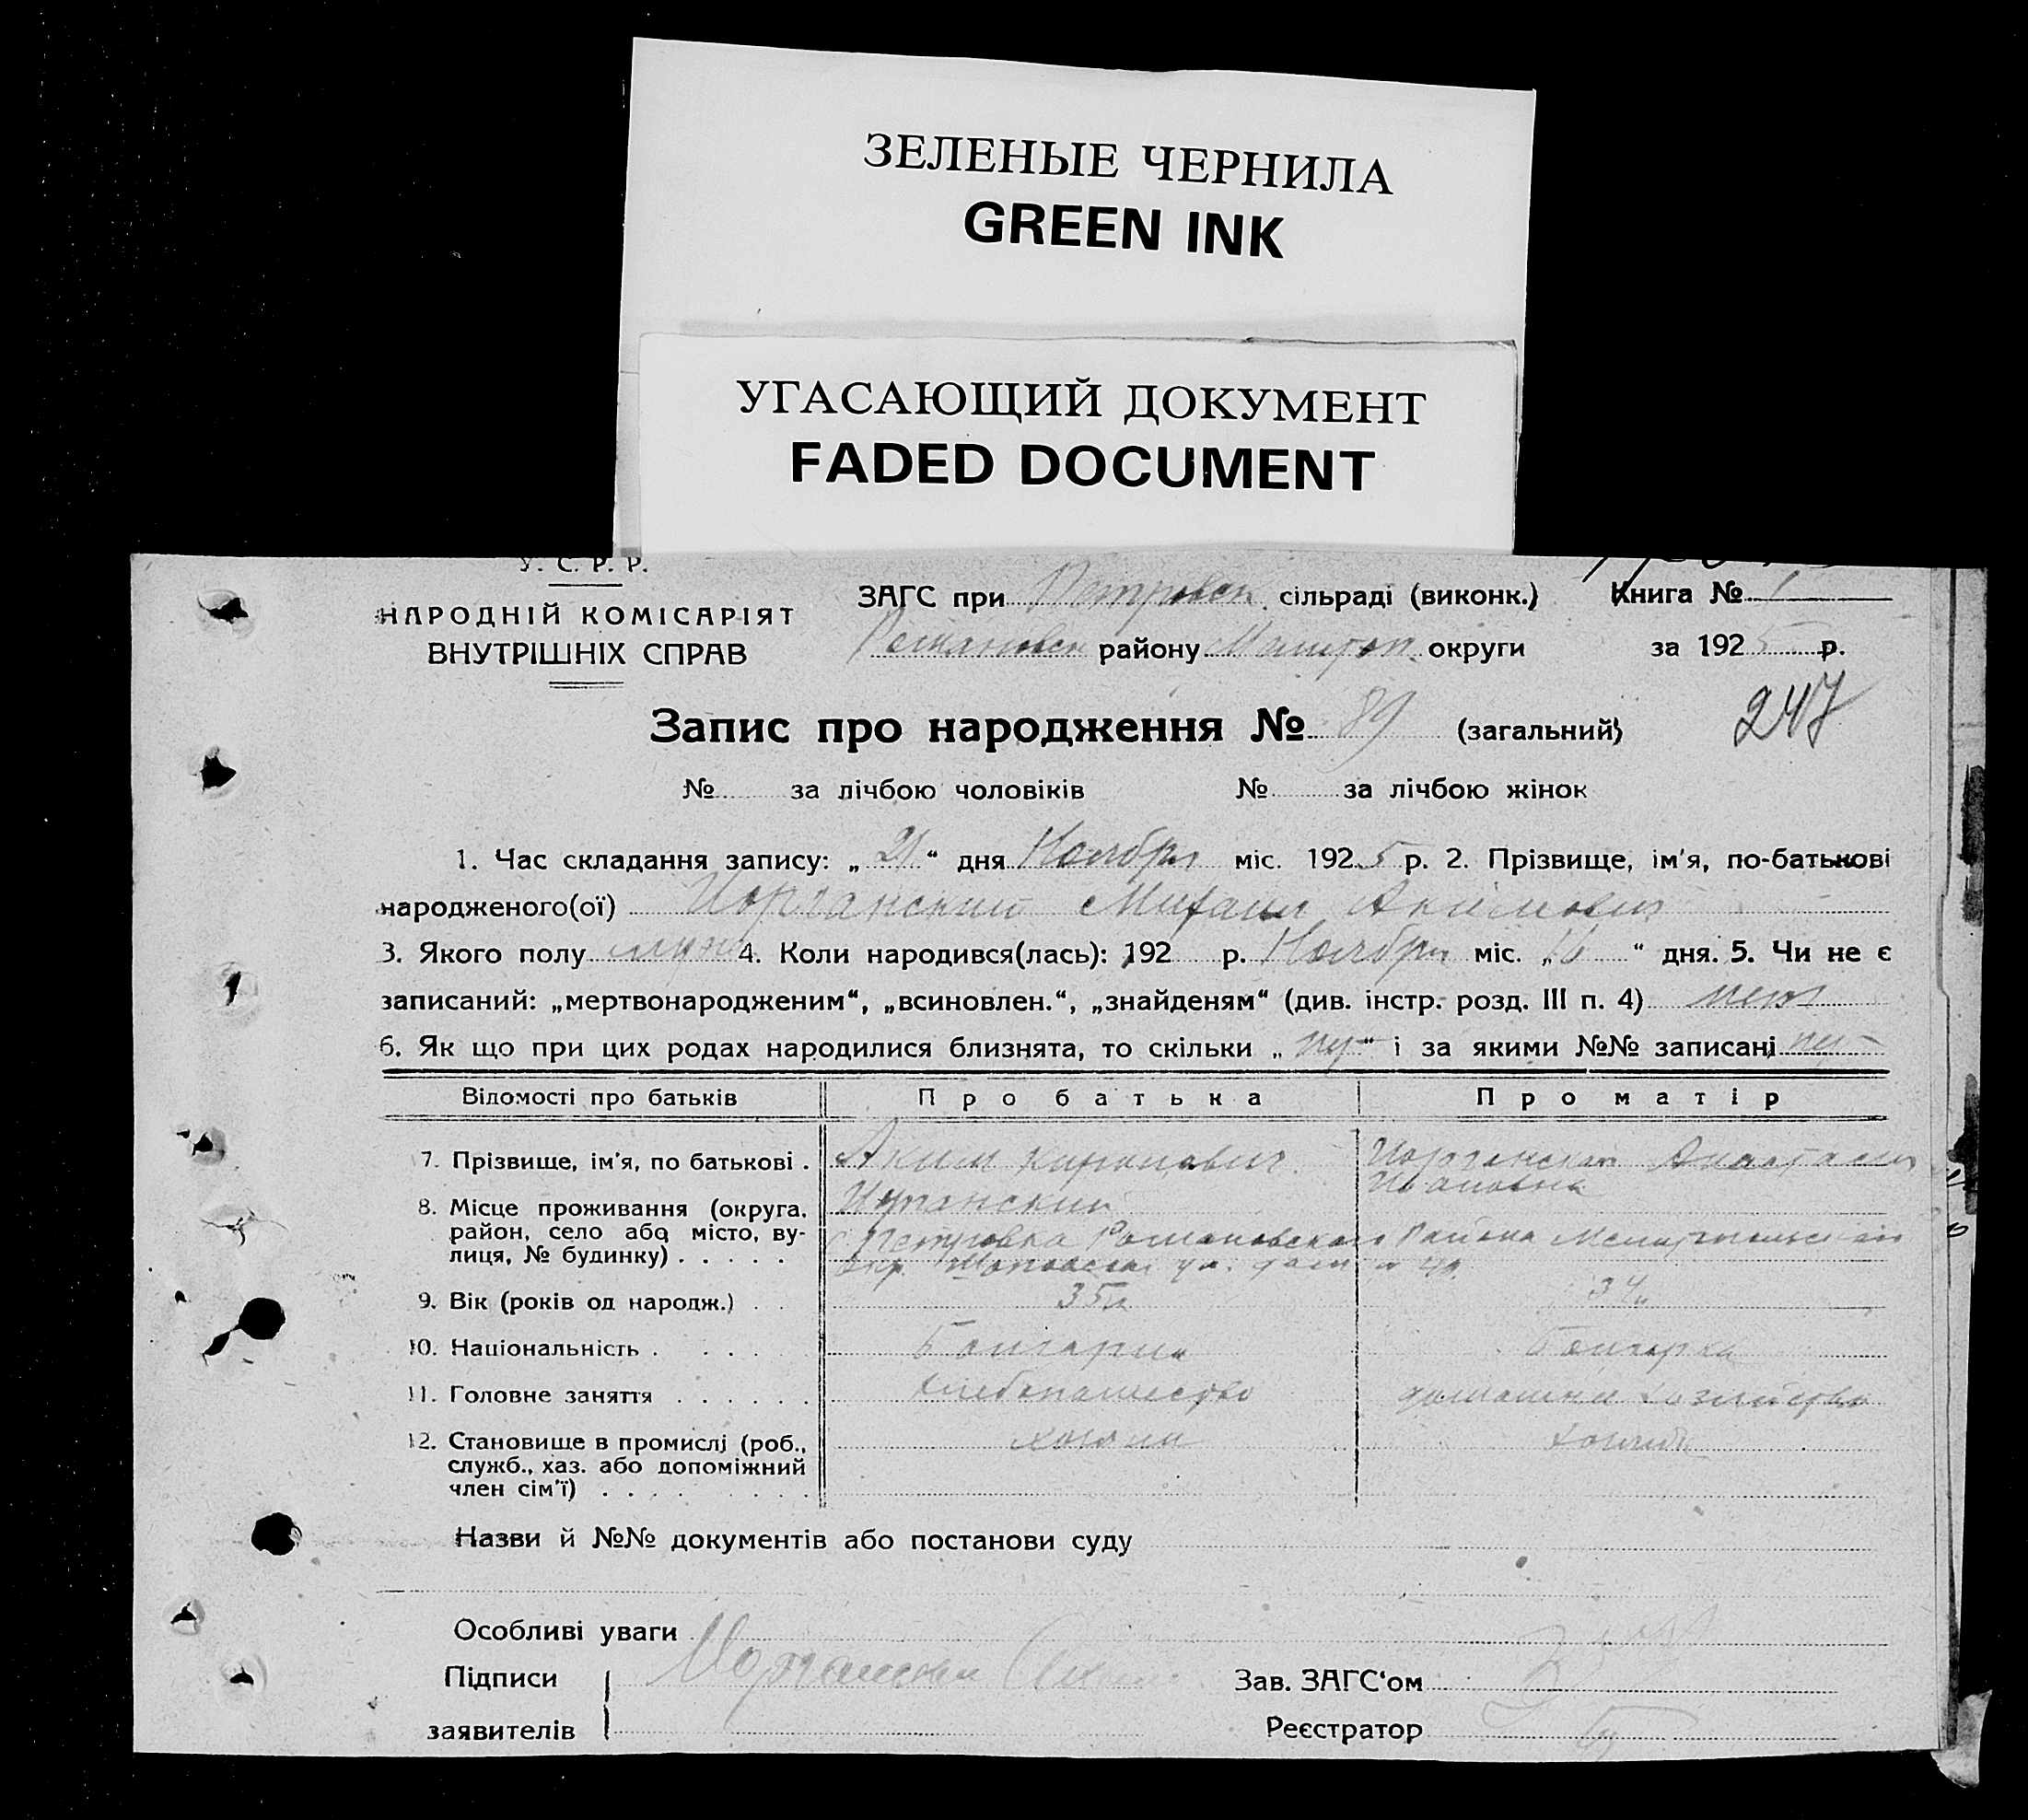 ЗЕЛЕНЫЕ ЧЕРНИЛА
GREEN INK
УГАСАЮЩИЙ ДОКУМЕНТ
FADED DOCUMENT
У. С. Р. Р.
НАРОДНІЙ КОМІСАРІЯТ
ВНУТРІШНІХ СПРАВ
ЗАГС при Петровск. сільраді (виконк.) Книга № 1
району округи за 1925 р.
Запис про народження № 89 (загальний)
247
№ за лічбою чоловіків № за лічбою жінок
1. Час складання запису: „21“ дня Ноября міс. 1925 р. 2. Прізвище, ім'я, по-батькові
народженого(ої) Иорганский Михаил Акимович
3. Якого полу муж 4. Коли народився(лась): 192 р. Ноября міс. „16“ дня. 5. Чи не є
записаний: „мертвонародженим“, „всиновлен.“, „знайденям“ (див. інстр. розд. III п. 4) нет
6. Як що при цих родах народилися близнята, то скільки „ “ і за якими №№ записані
Відомості про батьків Про батька Про матір
7. Прізвище, ім'я, по батькові . Аким Иорганская Анастасия
Ивановна
8. Місце проживання (округа,
район, село або місто, вулиця, № будинку) . . . . . Петровка Романовского Района Мелитопольской
Окр.
9. Вік (років од народж.) . . 35 л 34
10. Національність . . . . Болгарин Болгарка
11. Головне заняття . . . . . . хлебопашество домашнее хозяйство
12. Становище в промислі (роб.,
служб., хаз. або допоміжний
член сім'ї) . . . . . . . хозяин
Назви й №№ документів або постанови суду
Особливі уваги
Підписи Зав. ЗАГС'ом
заявителів Реєстратор